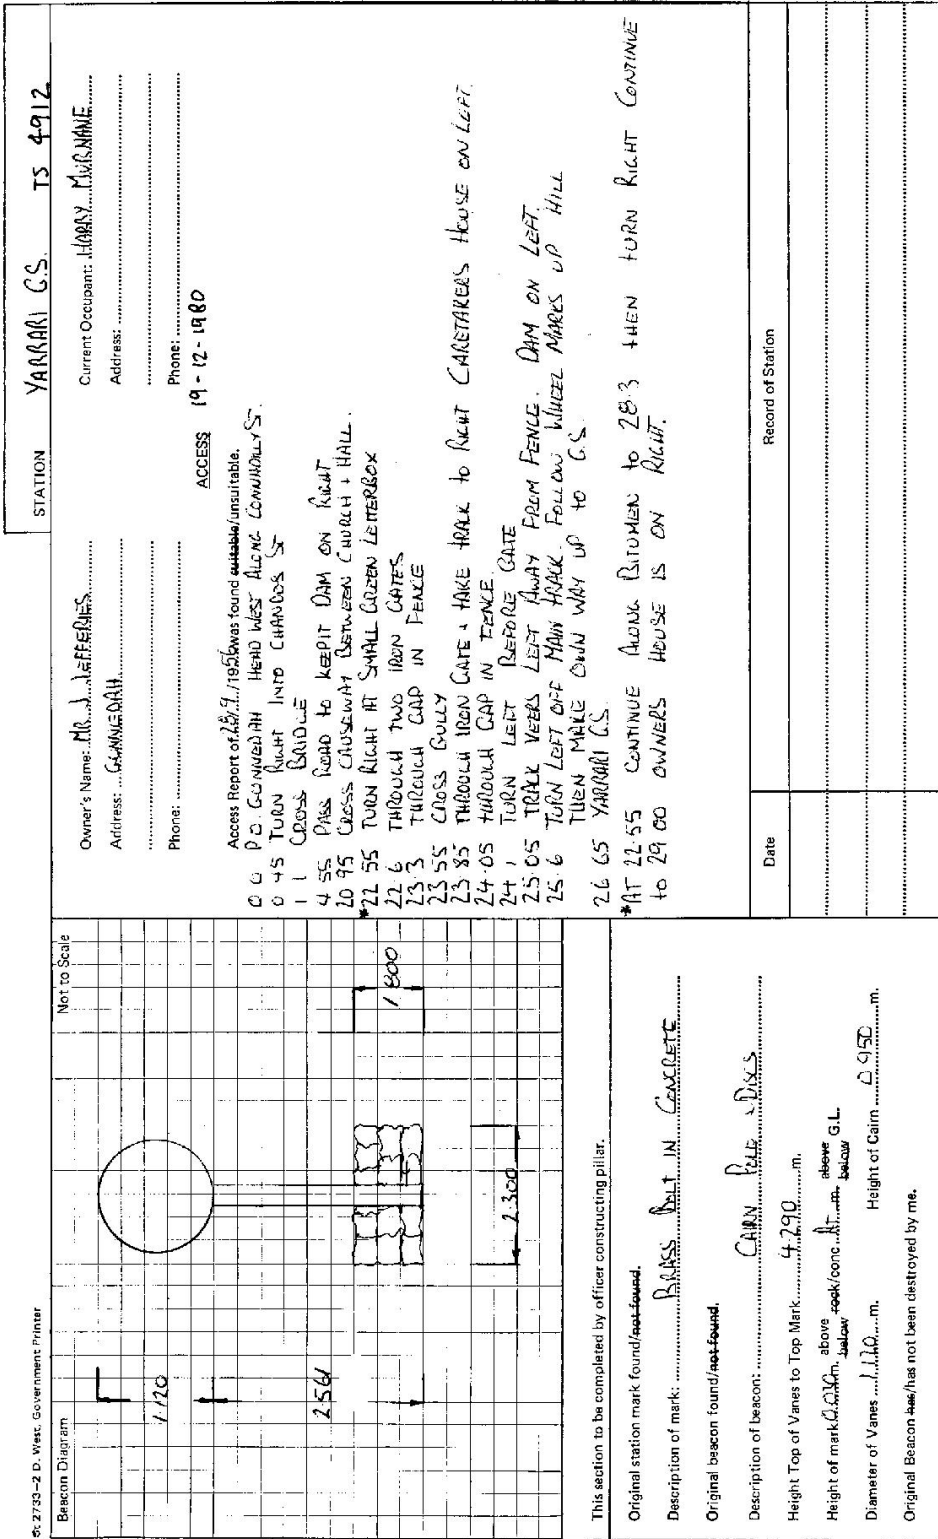 St 2733-2 D. West, Government Printer
Beacon Diagram
Not to Scale
1.120
2.561
1.800
2.300
This section to be completed by officer constructing pillar.
Original station mark found/not found.
Description of mark: BRASS BOLT IN CONCRETE
Original beacon found/not found.
Description of beacon: CAIRN POLE & DISCS
Height Top of Vanes to Top Mark 4.290 m.
Height of mark m. above below rock/conc At m. above below G.L.
Diameter of Vanes 1.120 m. Height of Cairn 0.950 m.
Original Beacon has/has not been destroyed by me.
STATION YARRARI G.S. TS 4912
Owner's Name: MR. J. JEFFERIES
Current Occupant: HARRY MURNANE
Address: GUNNEDAH
Address:
Phone:
Phone:
ACCESS 19-12-1980
Access Report of /195 was found suitable/unsuitable.
0 0 P.O. GUNNEDAH HEAD WEST ALONG CONNADILLY ST.
0 45 TURN RIGHT INTO CHANDOS ST
1 1 CROSS BRIDGE
4 55 PASS ROAD TO KEEPIT DAM ON RIGHT
20 95 CROSS CAUSEWAY BETWEEN CHURCH + HALL.
*22 55 TURN RIGHT AT SMALL GREEN LETTERBOX
22.6 THROUGH TWO IRON GATES
23.3 THROUGH GAP IN FENCE
23 55 CROSS GULLY
23 85 THROUGH IRON GATE & TAKE TRACK TO RIGHT CARETAKERS HOUSE ON LEFT.
24.05 THROUGH GAP IN FENCE
24 1 TURN LEFT BEFORE GATE
25.05 TRACK VEERS LEFT AWAY FROM FENCE. DAM ON LEFT.
25.6 TURN LEFT OFF MAIN TRACK. FOLLOW WHEEL MARKS UP HILL
THEN MAKE OWN WAY UP TO G.S.
26 65 YARRARI G.S.
*AT 22.55 CONTINUE ALONG BITUMEN TO 28.3 THEN TURN RIGHT CONTINUE
TO 29 00 OWNERS HOUSE IS ON RIGHT.
Date
Record of Station